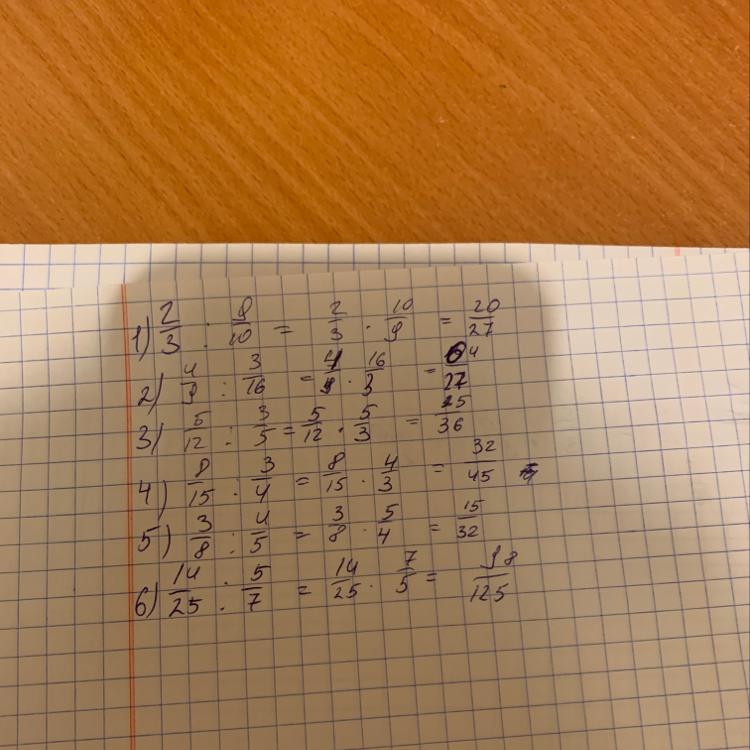 1) 2/3 : 9/10 = 2/3 · 10/9 = 20/27
2) 4/9 : 3/16 = 4/9 · 16/3 = 64/27
3) 5/12 : 3/5 = 5/12 · 5/3 = 25/36
4) 8/15 : 3/4 = 8/15 · 4/3 = 32/45
5) 3/8 : 4/5 = 3/8 · 5/4 = 15/32
6) 14/25 : 5/7 = 14/25 · 7/5 = 98/125